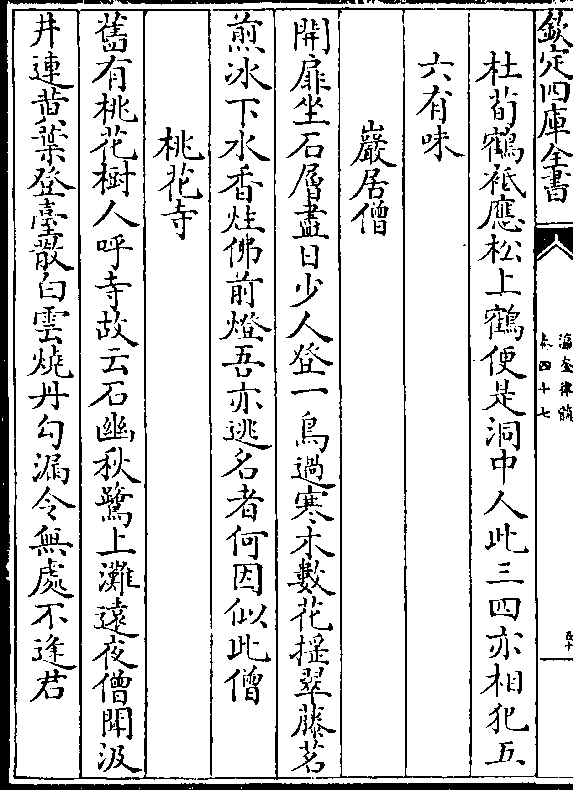 欽定四庫全書
瀛奎律髓
卷四十七
五十
杜荀鶴秪應松上鶴便是洞中人此三四亦相犯五
六有味
巖居僧
開扉坐石層盡日少人登一鳥過寒木數花揺翠藤茗
煎冰下水香炷佛前燈吾亦逃名者何因似此僧
桃花寺
舊有桃花樹人呼寺故云石幽秋鷺上灘遠夜僧聞汲
井連黄葉登臺散白雲燒丹勾漏令無處不逢君